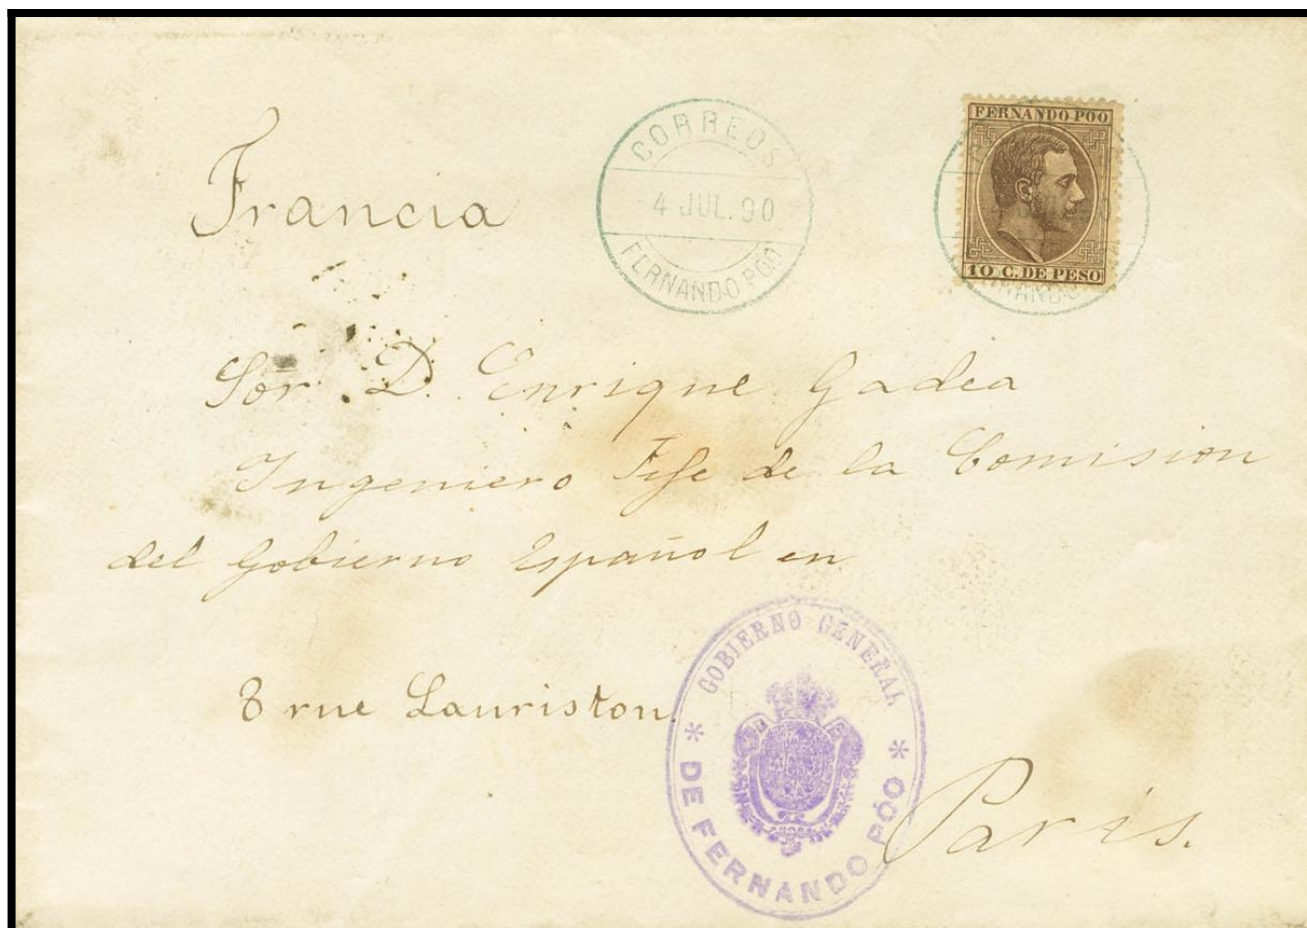 Francia
CORREOS
4 JUL. 90
FERNANDO PÓO
FERNANDO POO
10 C. DE PESO
Sōr. D. Enrique Gadea
Ingeniero Jefe de la Comision
del Gobierno Español en
8 rue Lauriston.
GOBIERNO GENERAL
DE FERNANDO PÓO
Paris.